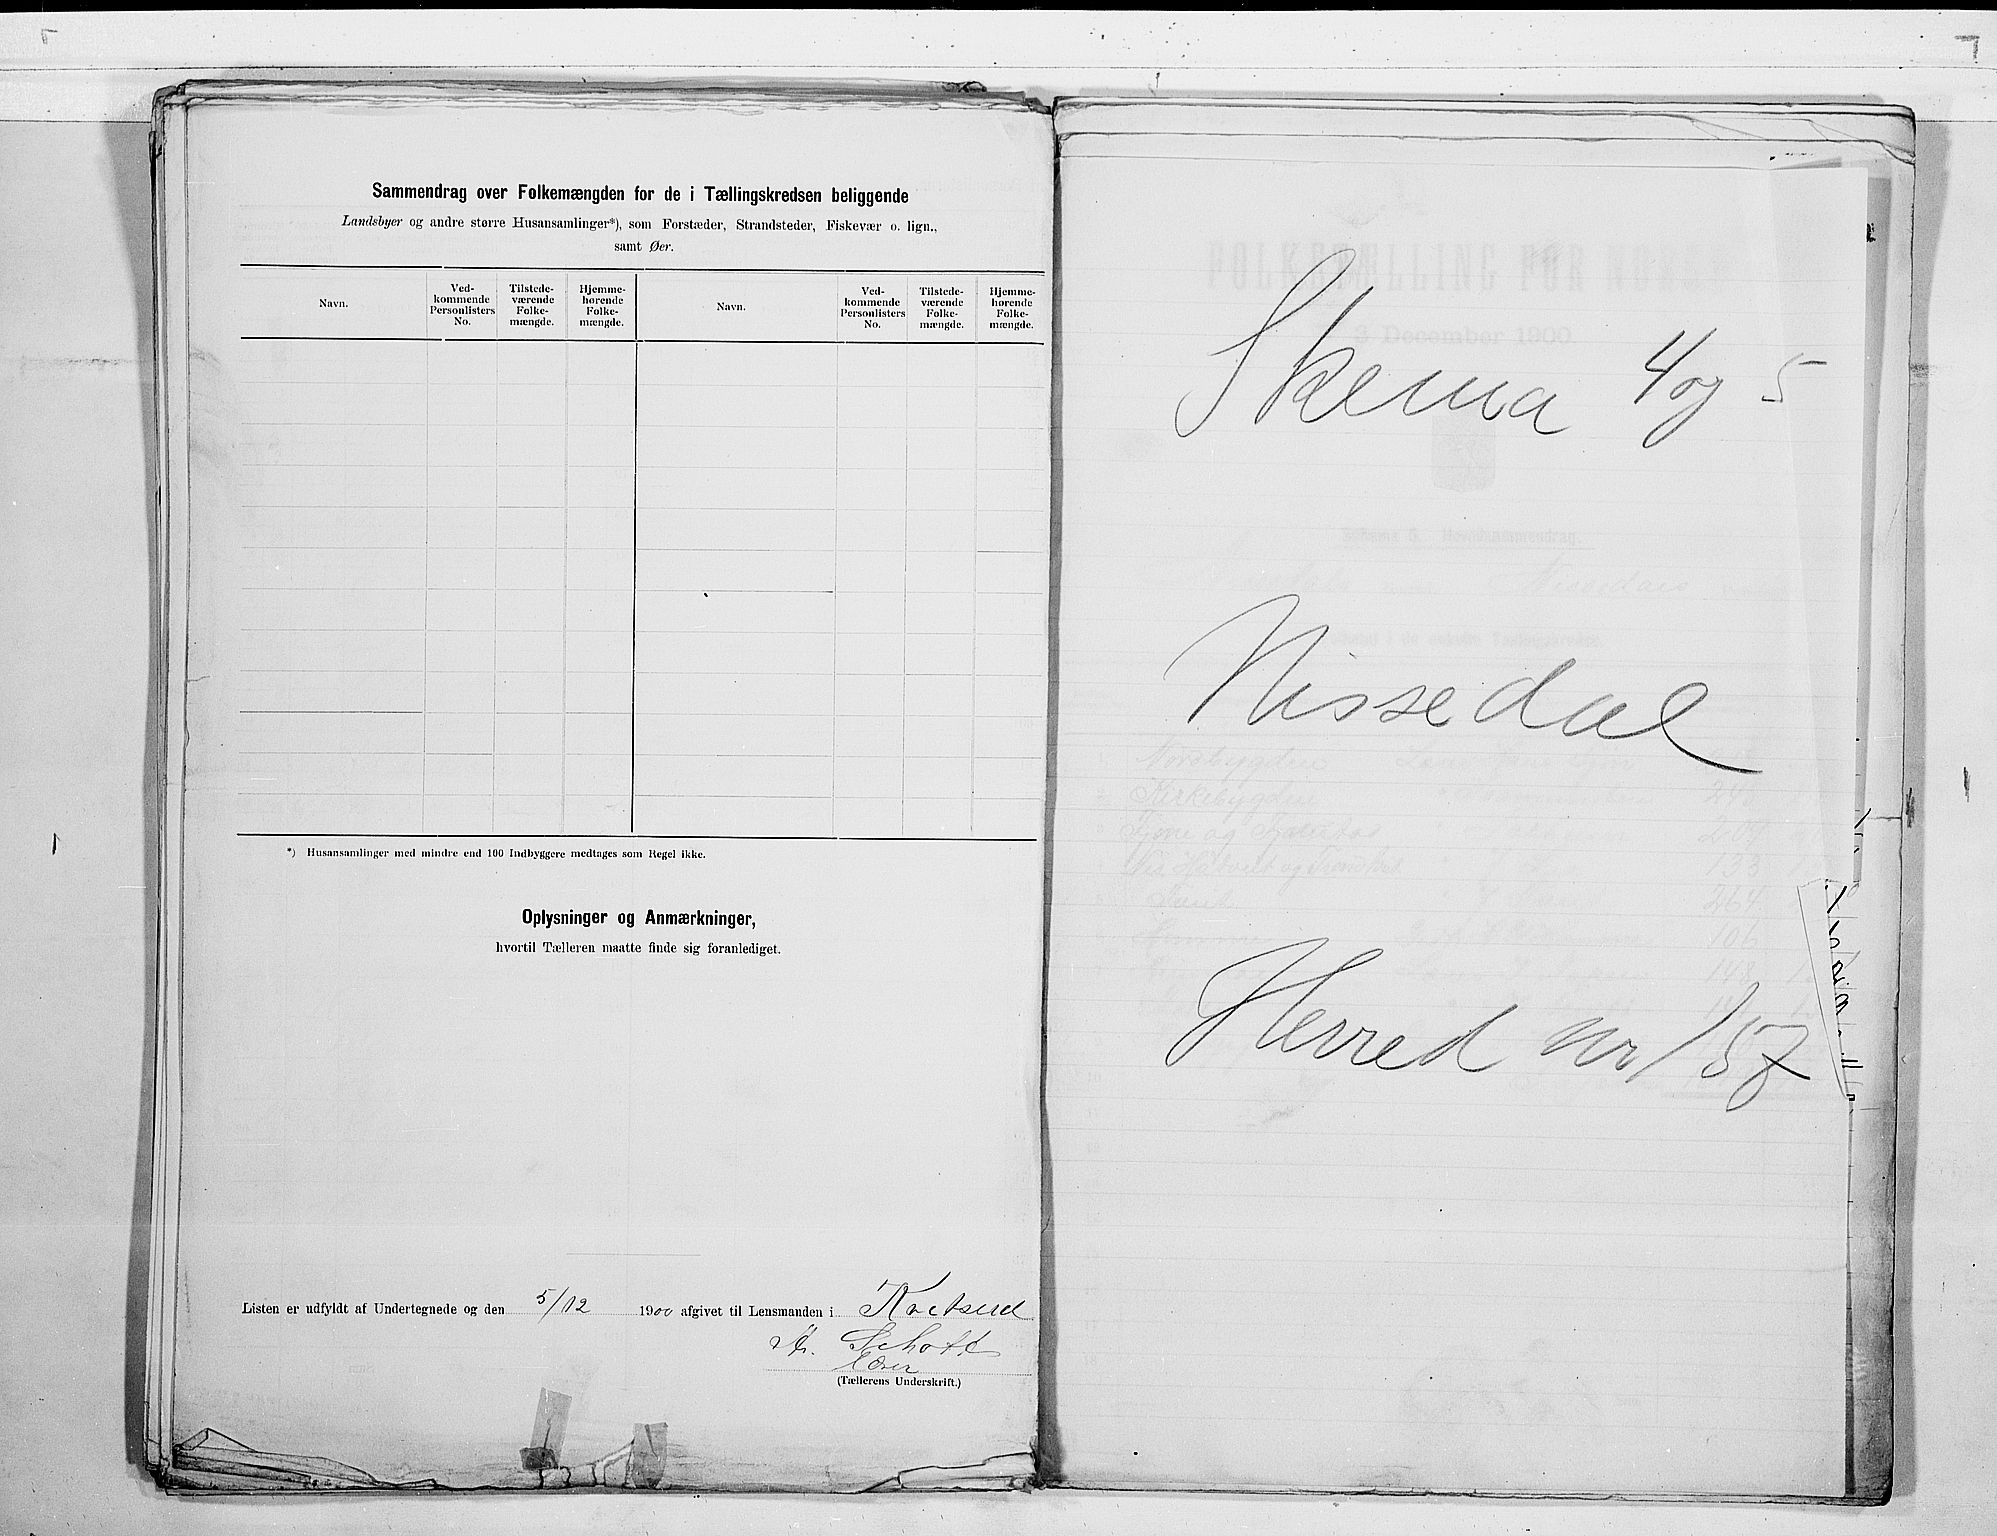 Sammendrag over Folkemængden for de i Tællingskredsen beliggende
Landsbyer og andre større Husansamlinger*), som Forstæder, Strandsteder, Fiskevær o. lign.,
samt Øer.
Navn.
Ved-
kommende
Personlisters
No.
Tilstede-
værende
Folke-
mængde.
Hjemme-
hørende
Folke-
mængde.
Navn.
Ved-
kommende
Personlisters
No.
Tilstede-
værende
Folke-
mængde.
Hjemme-
hørende
Folke-
mængde.
*) Husansamlinger med mindre end 100 Indbyggere medtages som Regel ikke.
Oplysninger og Anmærkninger,
hvortil Tælleren maatte finde sig foranlediget.
Listen er udfyldt af Undertegnede og den 5/12 1900 afgivet til Lensmanden i
Schott
(Tællerens Underskrift.)
Skema 4 og 5
Nissedal
Herred nr 157
3 December 1900
Nissedal
Kirkebygden
133
264
106
148